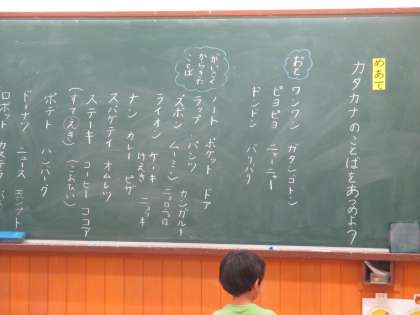 めあて
カタカナのことばをあつめよう
おと
ワンワン ガタンゴトン
ピヨピヨ ニャーニャー
ドンドン バリバリ
がいこく
からきた
ことば
ノート ポケット ドア
ラップ パンツ カンガルー
ズボン ムーミン
ライオン ケーキ
けえき クッキー
ナン カレー ピザ
スパゲティ オムレツ
ステーキ コーヒー ココア
(すてえき)
ポテト ハンバーグ
ドーナツ ニュース
ロボット カステラ